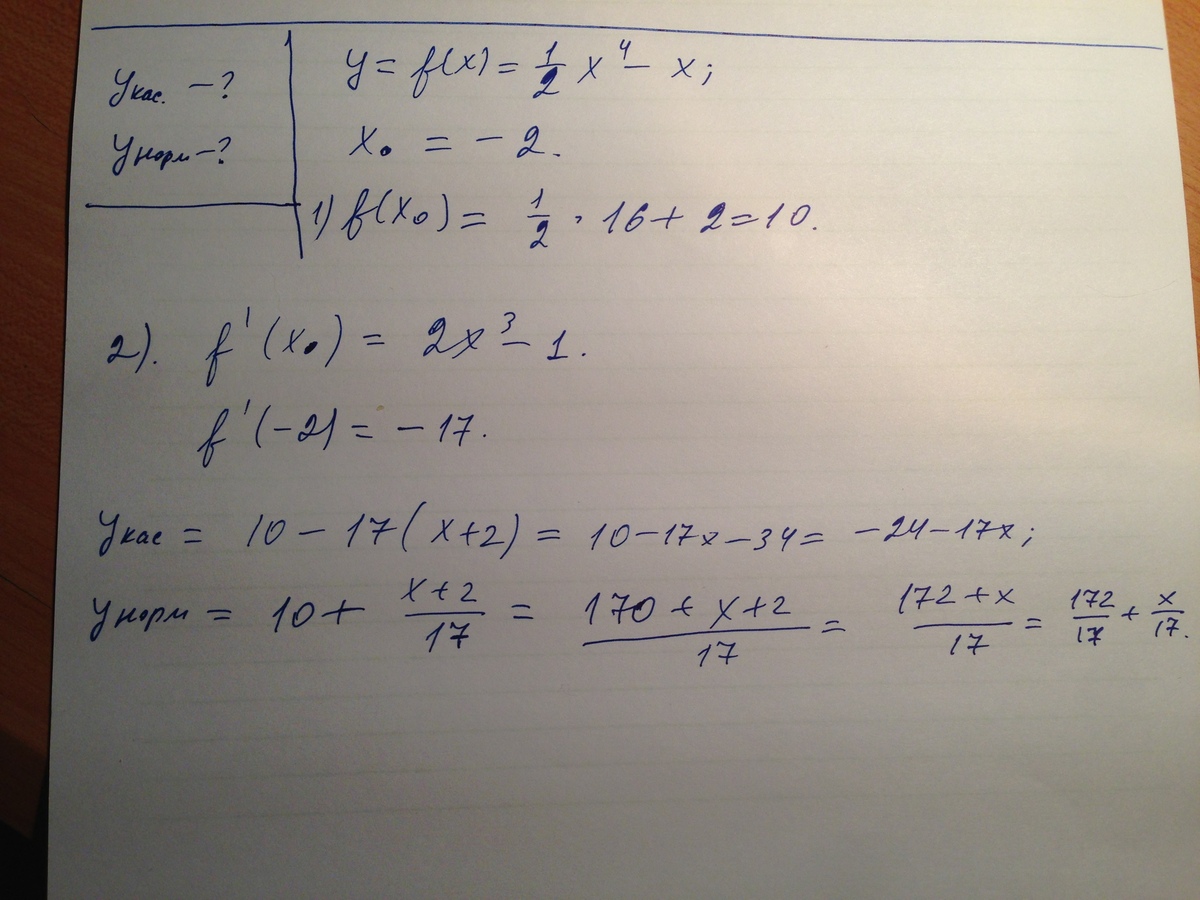 Yкас. – ?
Yнорм – ?
y = f(x) = 1/2 x⁴ – x;
x₀ = – 2.
1) f(x₀) = 1/2 · 16 + 2 = 10.
2). f'(x₀) = 2x³ – 1.
f'(-2) = – 17.
Yкас = 10 – 17(x+2) = 10 – 17x – 34 = – 24 – 17x;
Yнорм = 10 + (x+2)/17 = (170 + x + 2)/17 = (172 + x)/17 = 172/17 + x/17.